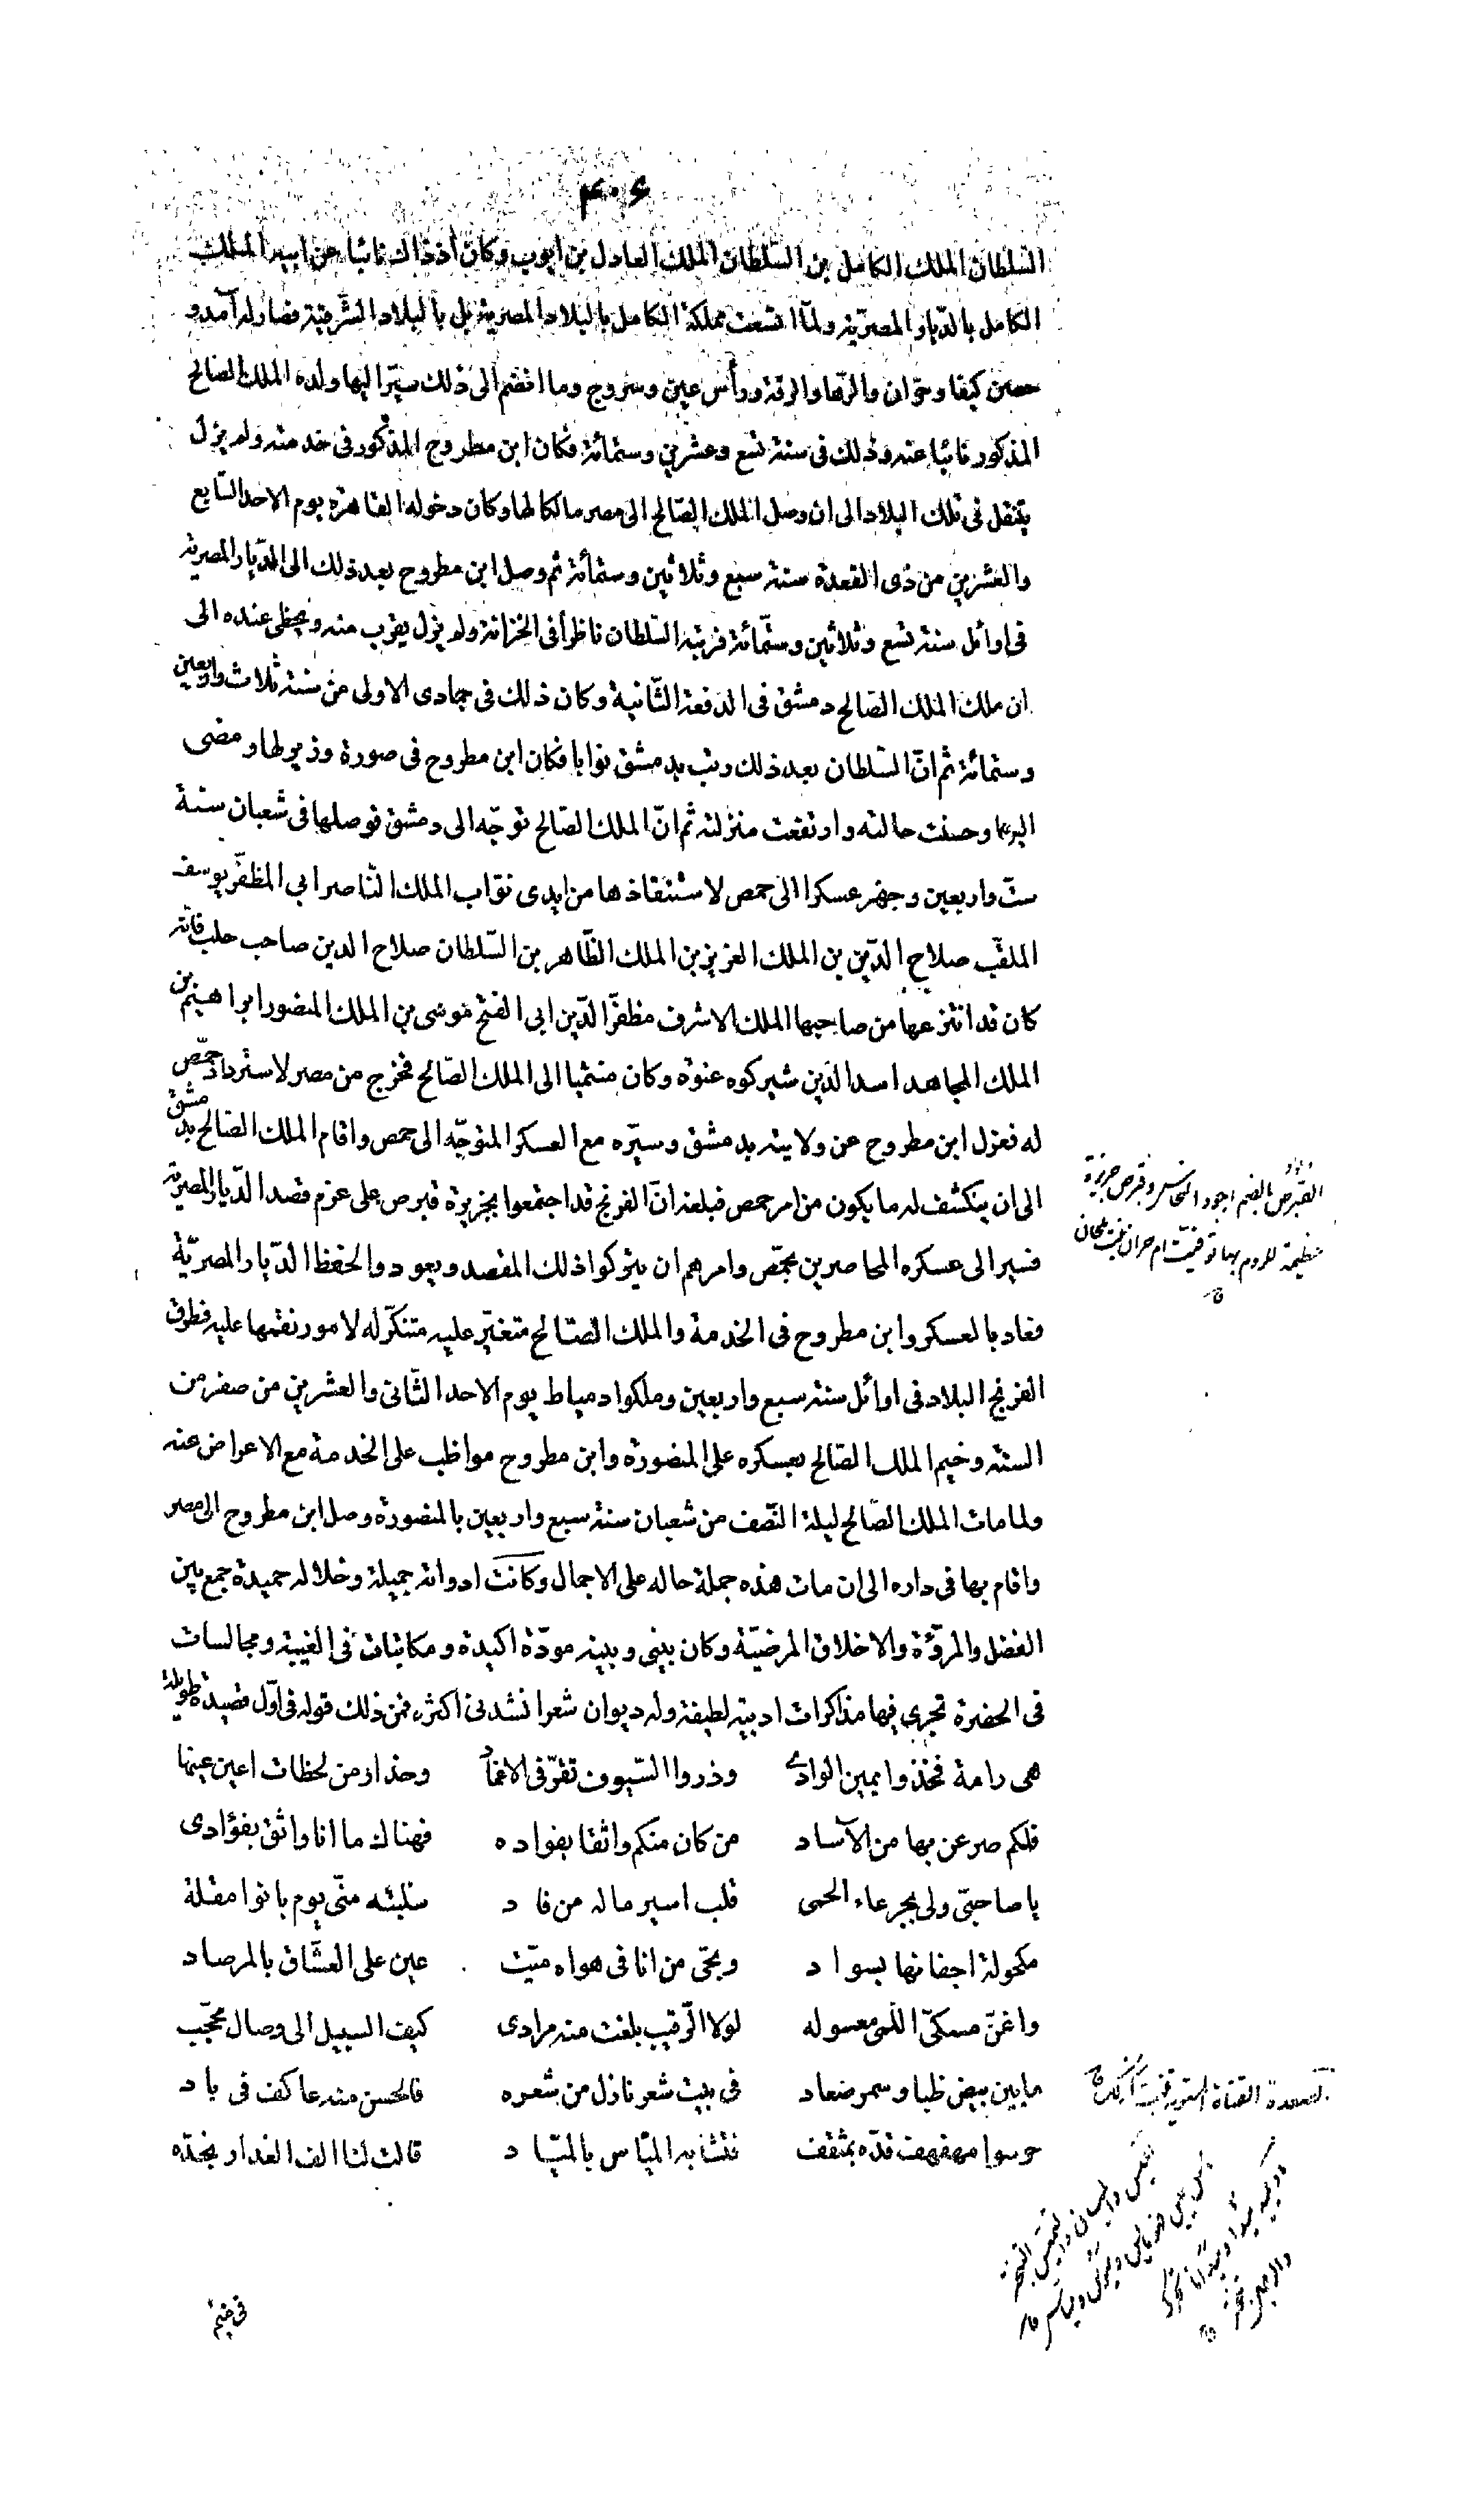 ۴۰۶
السّلطان الملك الكامل بن السّلطان الملك العادل بن ايوب وكان اذ ذاك نائبا عن ابيه الملك
الكامل بالدّيار المصريّة ولمّا اتسعت مملكة الكامل بالبلاد المصرية بل بالبلاد الشّرقية فصار له آمد و
حصن كيفا وحرّان والرّها والرقة ورأس عين وسروج وما انضم الى ذلك سيّر اليها ولده الملك الصالح
المذكور نائبا عنه وذلك فى سنة تسع وعشرين وستمائة فكان ابن مطروح المذكور فى خدمته ولم يزل
يتنقل فى تلك البلاد الى ان وصل الملك الصّالح الى مصر مالكا لها وكان دخوله القاهرة يوم الاحد السّابع
والعشرين من ذى القعدة سنة سبع وثلاثين وستمائة ثم وصل ابن مطروح بعد ذلك الى الدّيار المصرية
فى اوائل سنة تسع وثلاثين وستّمائة فرتبه السّلطان ناظرا فى الخزانة ولم يزل يقرب منه ويحظى عنده الى
ان ملك الملك الصّالح دمشق فى الدفعة الثّانية وكان ذلك فى جمادى الاولى من سنة ثلاث واربعين
وستمائة ثم انّ السّلطان بعد ذلك رتب بدمشق نوابا فكان ابن مطروح فى صورة وزير لها ومضى
اليها وحسنت حالته وارتفعت منزلته ثم انّ الملك الصّالح توجّه الى دمشق فوصلها فى شعبان سنة
ستّ واربعين وجهز عسكرا الى حمص لاستنقاذها من ايدى نوّاب الملك النّاصر ابى المظفّر يوسف
الملقّب صلاح الدّين بن الملك العزيز بن الملك الظّاهر بن السّلطان صلاح الدين صاحب حلب فانه
كان قد انتزعها من صاحبها الملك الاشرف مظفّر الدّين ابى الفتح موسى بن الملك المنصور ابراهيم بن
الملك المجاهد اسد الدّين شيركوه عنوة وكان منتميا الى الملك الصّالح فخرج من مصر لاسترداد حمص
له فعزل ابن مطروح عن ولايته بدمشق وسيّره مع العسكر المتوجّه الى حمص واقام الملك الصّالح بدمشق
الى ان ينكشف له ما يكون من امر حمص فبلغه انّ الفرنج قد اجتمعوا بجزيرة قبرص على عزم قصد الدّيار المصرية
فسير الى عسكره المحاصرين بحمّص وامرهم ان يتركوا ذلك المقصد ويعودوا لحفظ الدّيار المصريّة
فعاد بالعسكر وابن مطروح فى الخدمة والملك الصّالح متغيّر عليه متنكّر له لامور نقمها عليه فطرق
الفرنج البلاد فى اوائل سنة سبع واربعين وملكوا دمياط يوم الاحد الثّانى والعشرين من صفر من
السنة وخيم الملك الصّالح بعسكره على المنصورة وابن مطروح مواظب على الخدمة مع الاعراض عنه
ولما مات الملك الصّالح ليلة النّصف من شعبان سنة سبع واربعين بالمنصورة وصل ابن مطروح الى مصر
واقام بها فى داره الى ان مات هذه جملة حاله على الاجمال وكانت ادواته جميلة وخلاله حميدة جمع بين
الفضل والمروّة والاخلاق المرضيّة وكان بينى وبينه مودّة اكيدة ومكاتبات فى الغيبة ومجالسات
فى الحضرة تجرى فيها مذاكرات ادبية لطيفة وله ديوان شعر انشدنى اكثره فمن ذلك قوله فى اوّل قصيدة طويلة
هى رامة فخذوا يمين الوادى وذروا السّيوف تقرّ فى الاغماد وحذار من لحظات اعين عينها
فلكم صرعن بها من الآساد من كان منكم واثقا بفواده فهناك ما انا واثق بفؤادى
يا صاحبّى ولى بجرعاء الحمى قلب اسير ما له من فاد سلبته منّى يوم بانوا مقلة
مكحولة اجفانها بسواد وبحىّ من انا فى هواه ميّت عين على العشّاق بالمرصاد
واغنّ مسكىّ اللمى معسوله لولا الرّقيب بلغت منه مرادى كيف السبيل الى وصال محجّب
ما بين بيض ظبا وسمر صعاد فى بيت شعر نازل من شعره فالحسن منه عاكف فى باد
حرسوا مهفهف قدّه بمثقف فتشابه الميّاس بالميّاد قالت لنا الف العذار بخدّه
القبرص بالضم اجود النحاس وقبرص جزيرة
عظيمة للروم بها توفيت ام حرام بنت ملحان
الصعدة القناة المستوية تنبت كذلك
فى ميم